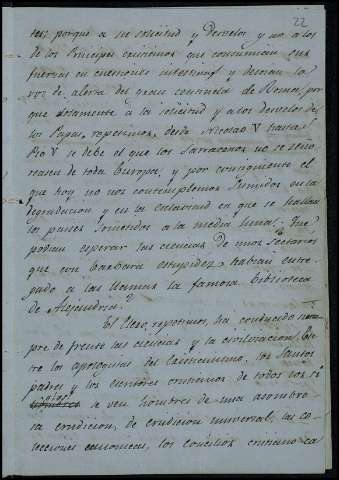 22
tes; porque a su solicitud y desvelos y no a los
de los Principes cristianos que consumian sus
fuerzas en cuestiones intestinas y desoian la
voz de alerta del gran centinela de Roma, por
que solamente a la solicitud y a los desvelos de
los Papas, repetimos, desde Nicolao V hasta
Pio V se debe el que los Sarracenos no se seño
reasen de toda Europa, y por consiguiente el
que hoy no nos contemplemos sumidos en la
degradacion y en la esclavitud en que se hallan
los paises sometidos a la media luna. ¿Que
podian esperar las ciencias de unos sectarios
que con barbara estupidez habian entre
gado a las llamas la famosa biblioteca
de Alejandria?
El Clero, repetimos, ha conducido siem
pre de frente las ciencias y la civilizacion. En
tre los apologias del cristianismo, los Santos
padres y los escritores cristianos de todos los si
glos
hombres se ven hombres de una asombro
sa erudicion, de erudicion universal; las co
lecciones canonicas, los Concilios